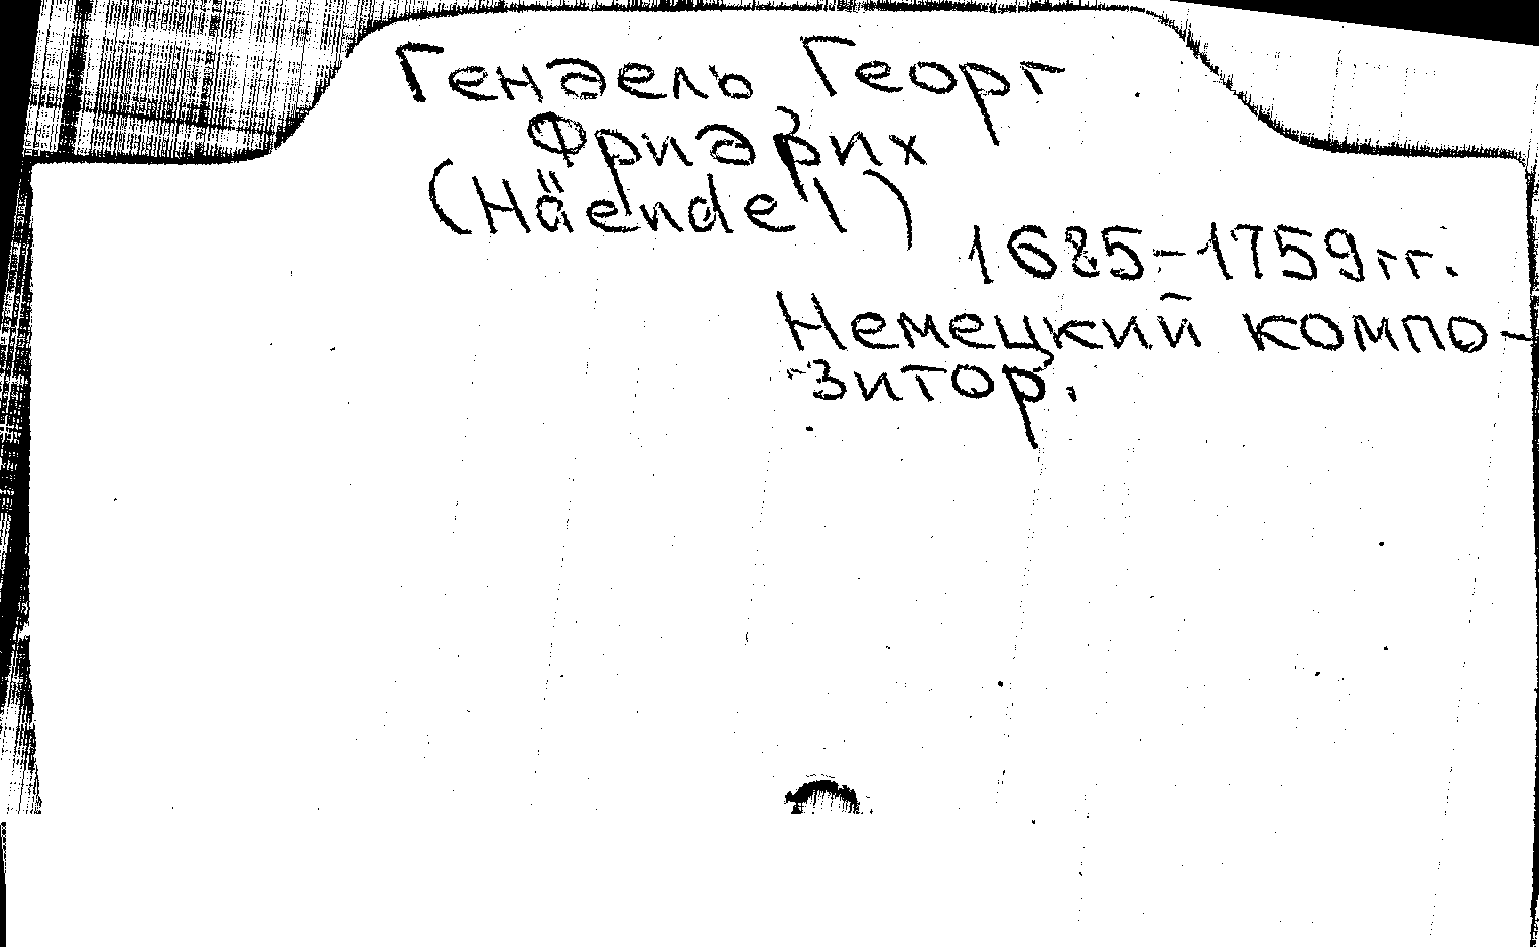 Гендель Георг
Фридрих
(Häendel)
1685-1759гг.
Немецкий компо-
зитор.